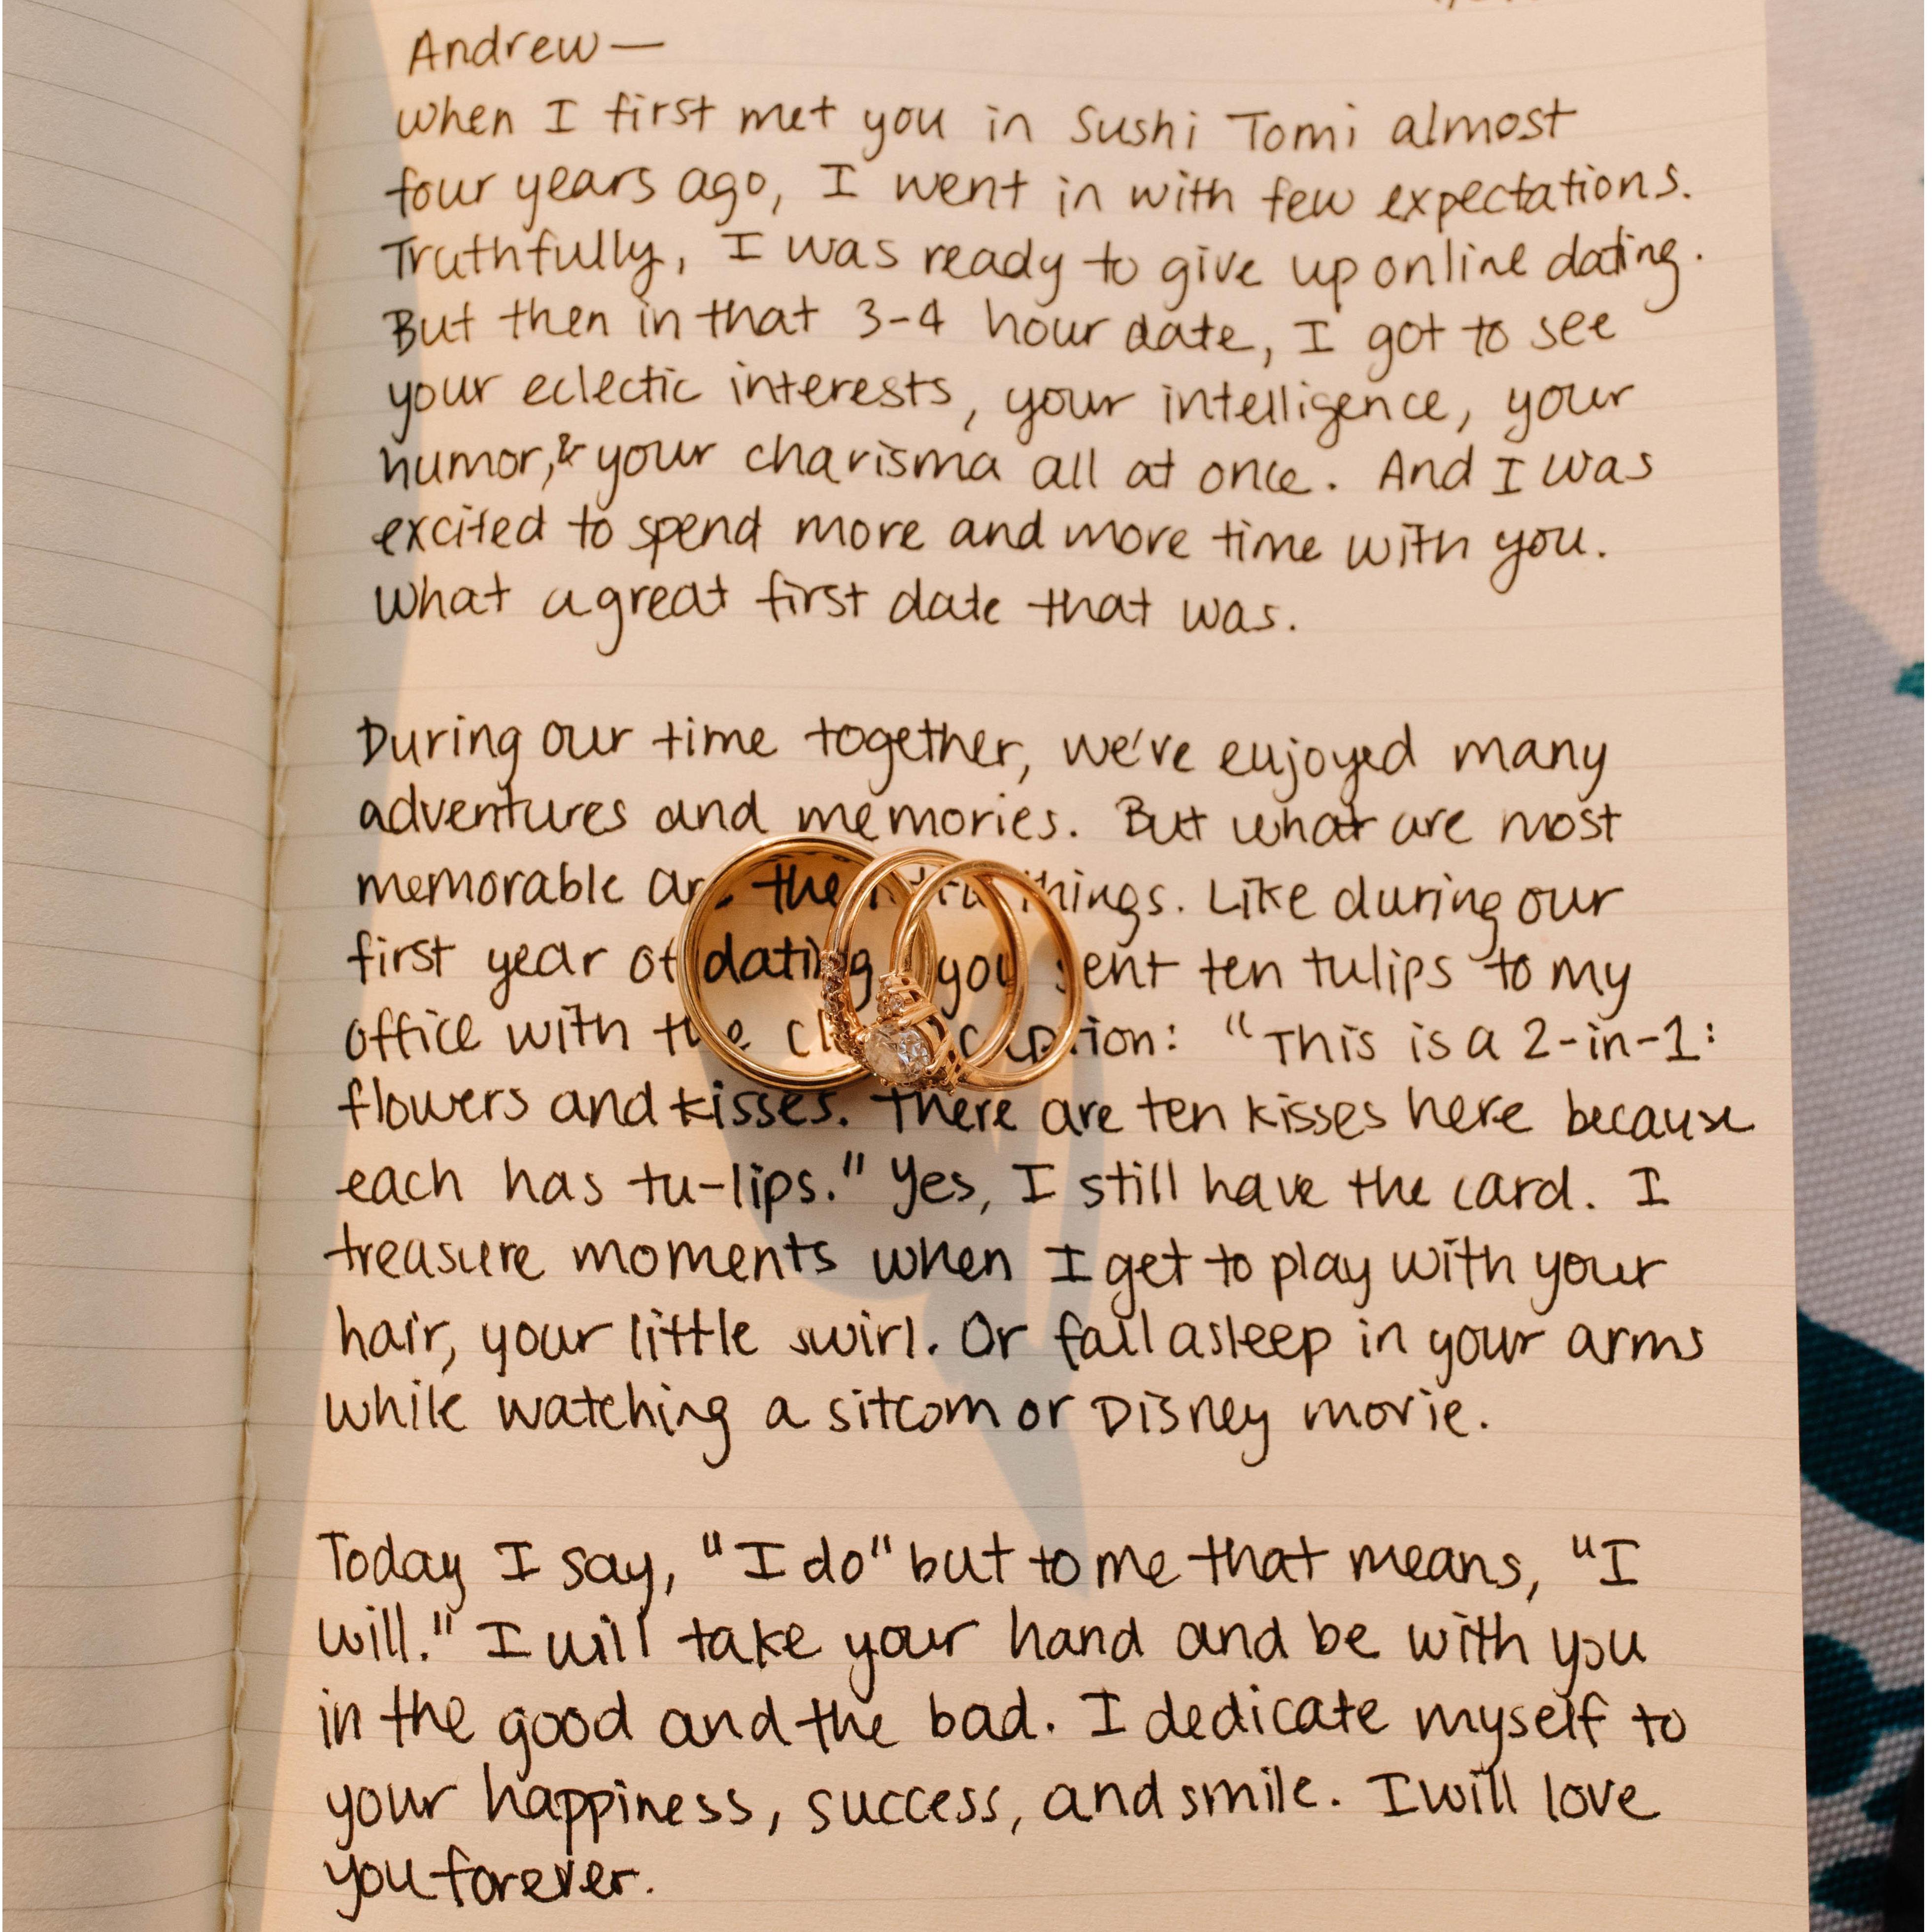 Andrew—
when I first met you in Sushi Tomi almost
four years ago, I went in with few expectations.
Truthfully, I was ready to give up online dating.
But then in that 3-4 hour date, I got to see
your eclectic interests, your intelligence, your
humor,& your charisma all at once. And I was
excited to spend more and more time with you.
What a great first date that was.
During our time together, we've enjoyed many
adventures and memories. But what are most
memorable are the things. Like during our
first year of dating you sent ten tulips to my
office with the caption: "This is a 2-in-1:
flowers and kisses. There are ten kisses here because
each has tu-lips." Yes, I still have the card. I
treasure moments when I get to play with your
hair, your little swirl. Or fall asleep in your arms
while watching a sitcom or Disney movie.
Today I say, "I do" but to me that means, "I
will." I will take your hand and be with you
in the good and the bad. I dedicate myself to
your happiness, success, and smile. I will love
you forever.